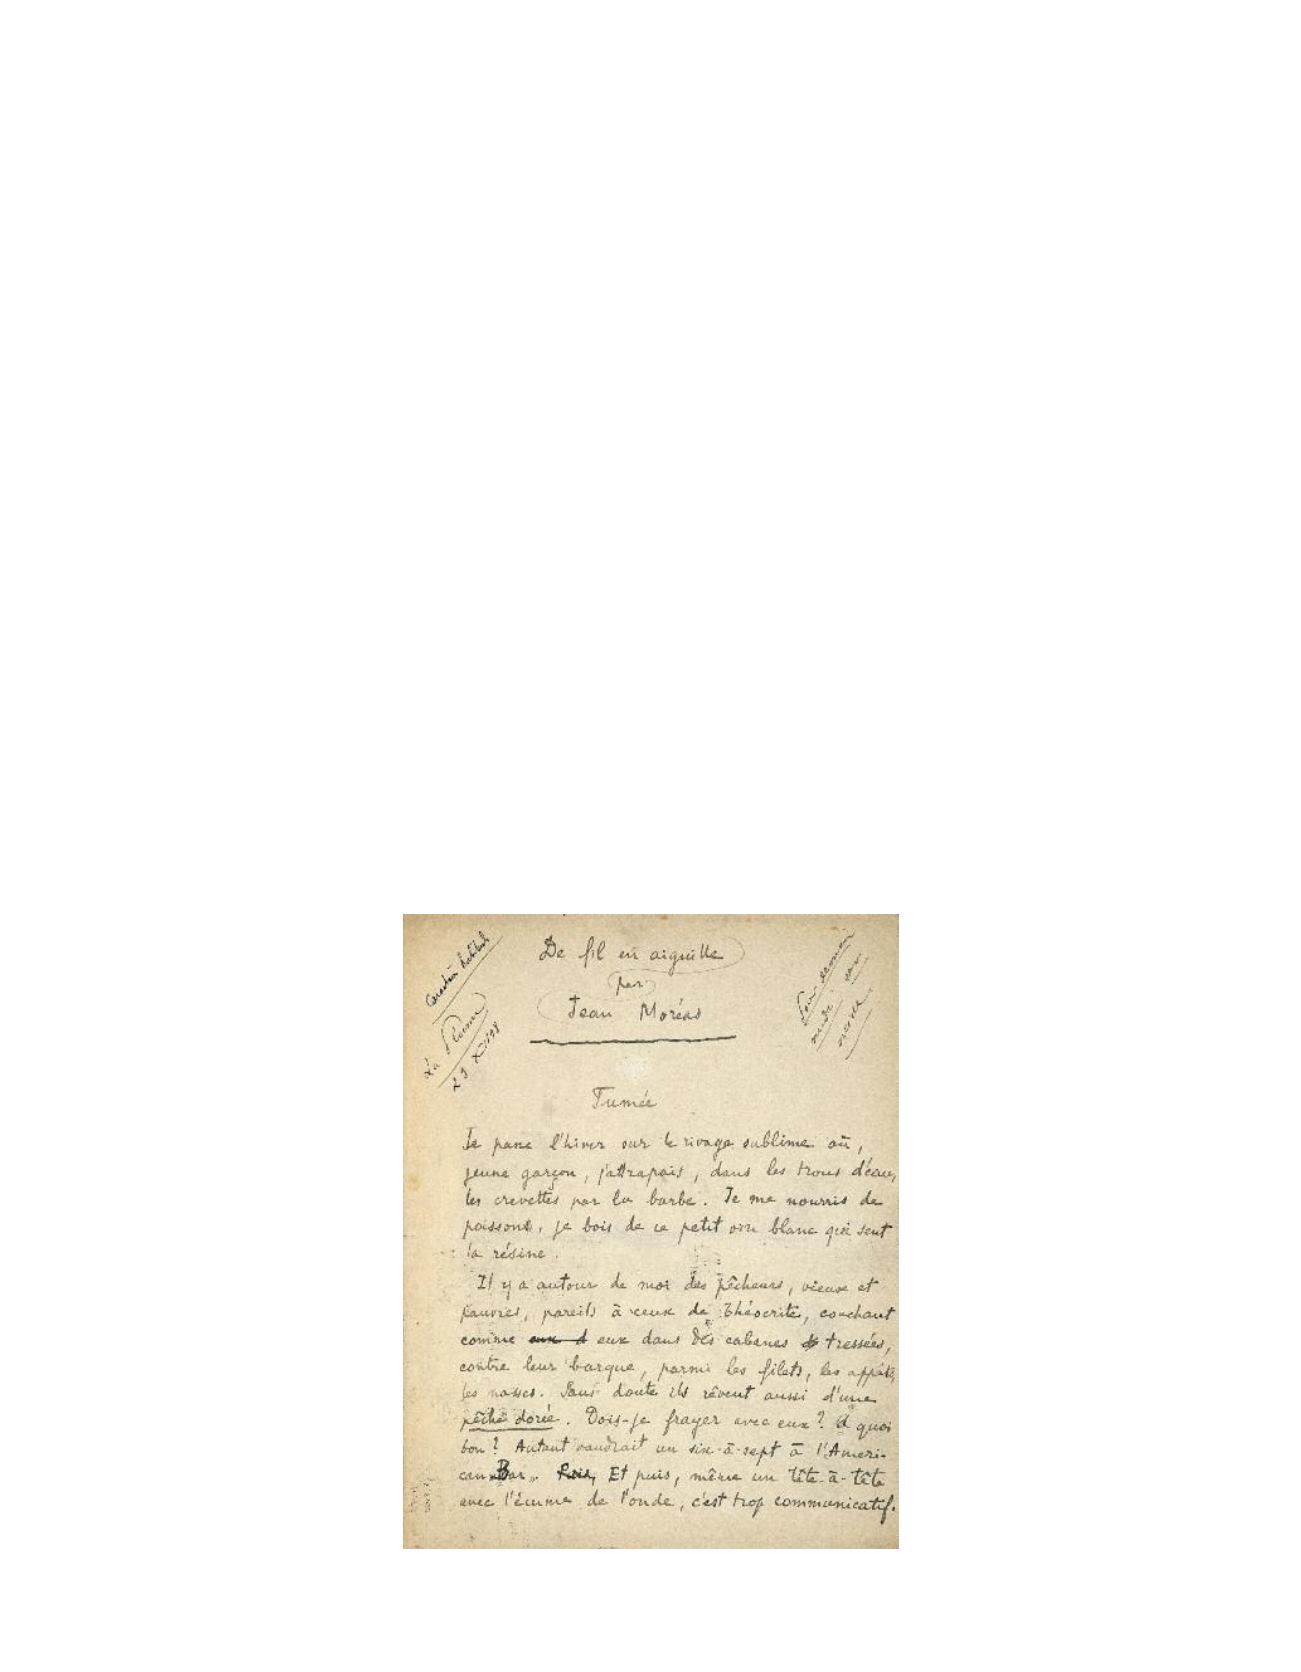 De fil en aiguille
par
Jean Moréas
La Plume
Fumée
Je passe l'hiver sur le rivage sublime où,
jeune garçon, j'attrapais, dans les trous d'eau,
les crevettes par la barbe. Je me nourris de
poissons, je bois de ce petit vin blanc qui sent
la résine.
Il y a autour de moi des pêcheurs, vieux et
pauvres, pareils à ceux de Théocrite, couchant
comme eux dans des cabanes tressées,
contre leur barque, parmi les filets, les appâts,
les nasses. Sans doute ils rêvent aussi d'une
pêche dorée. Dois-je frayer avec eux? A quoi
bon? Autant vaudrait un six-à-sept à l'Ameri-
can-Bar. Et puis, même un tête-à-tête
avec l'écume de l'onde, c'est trop communicatif.